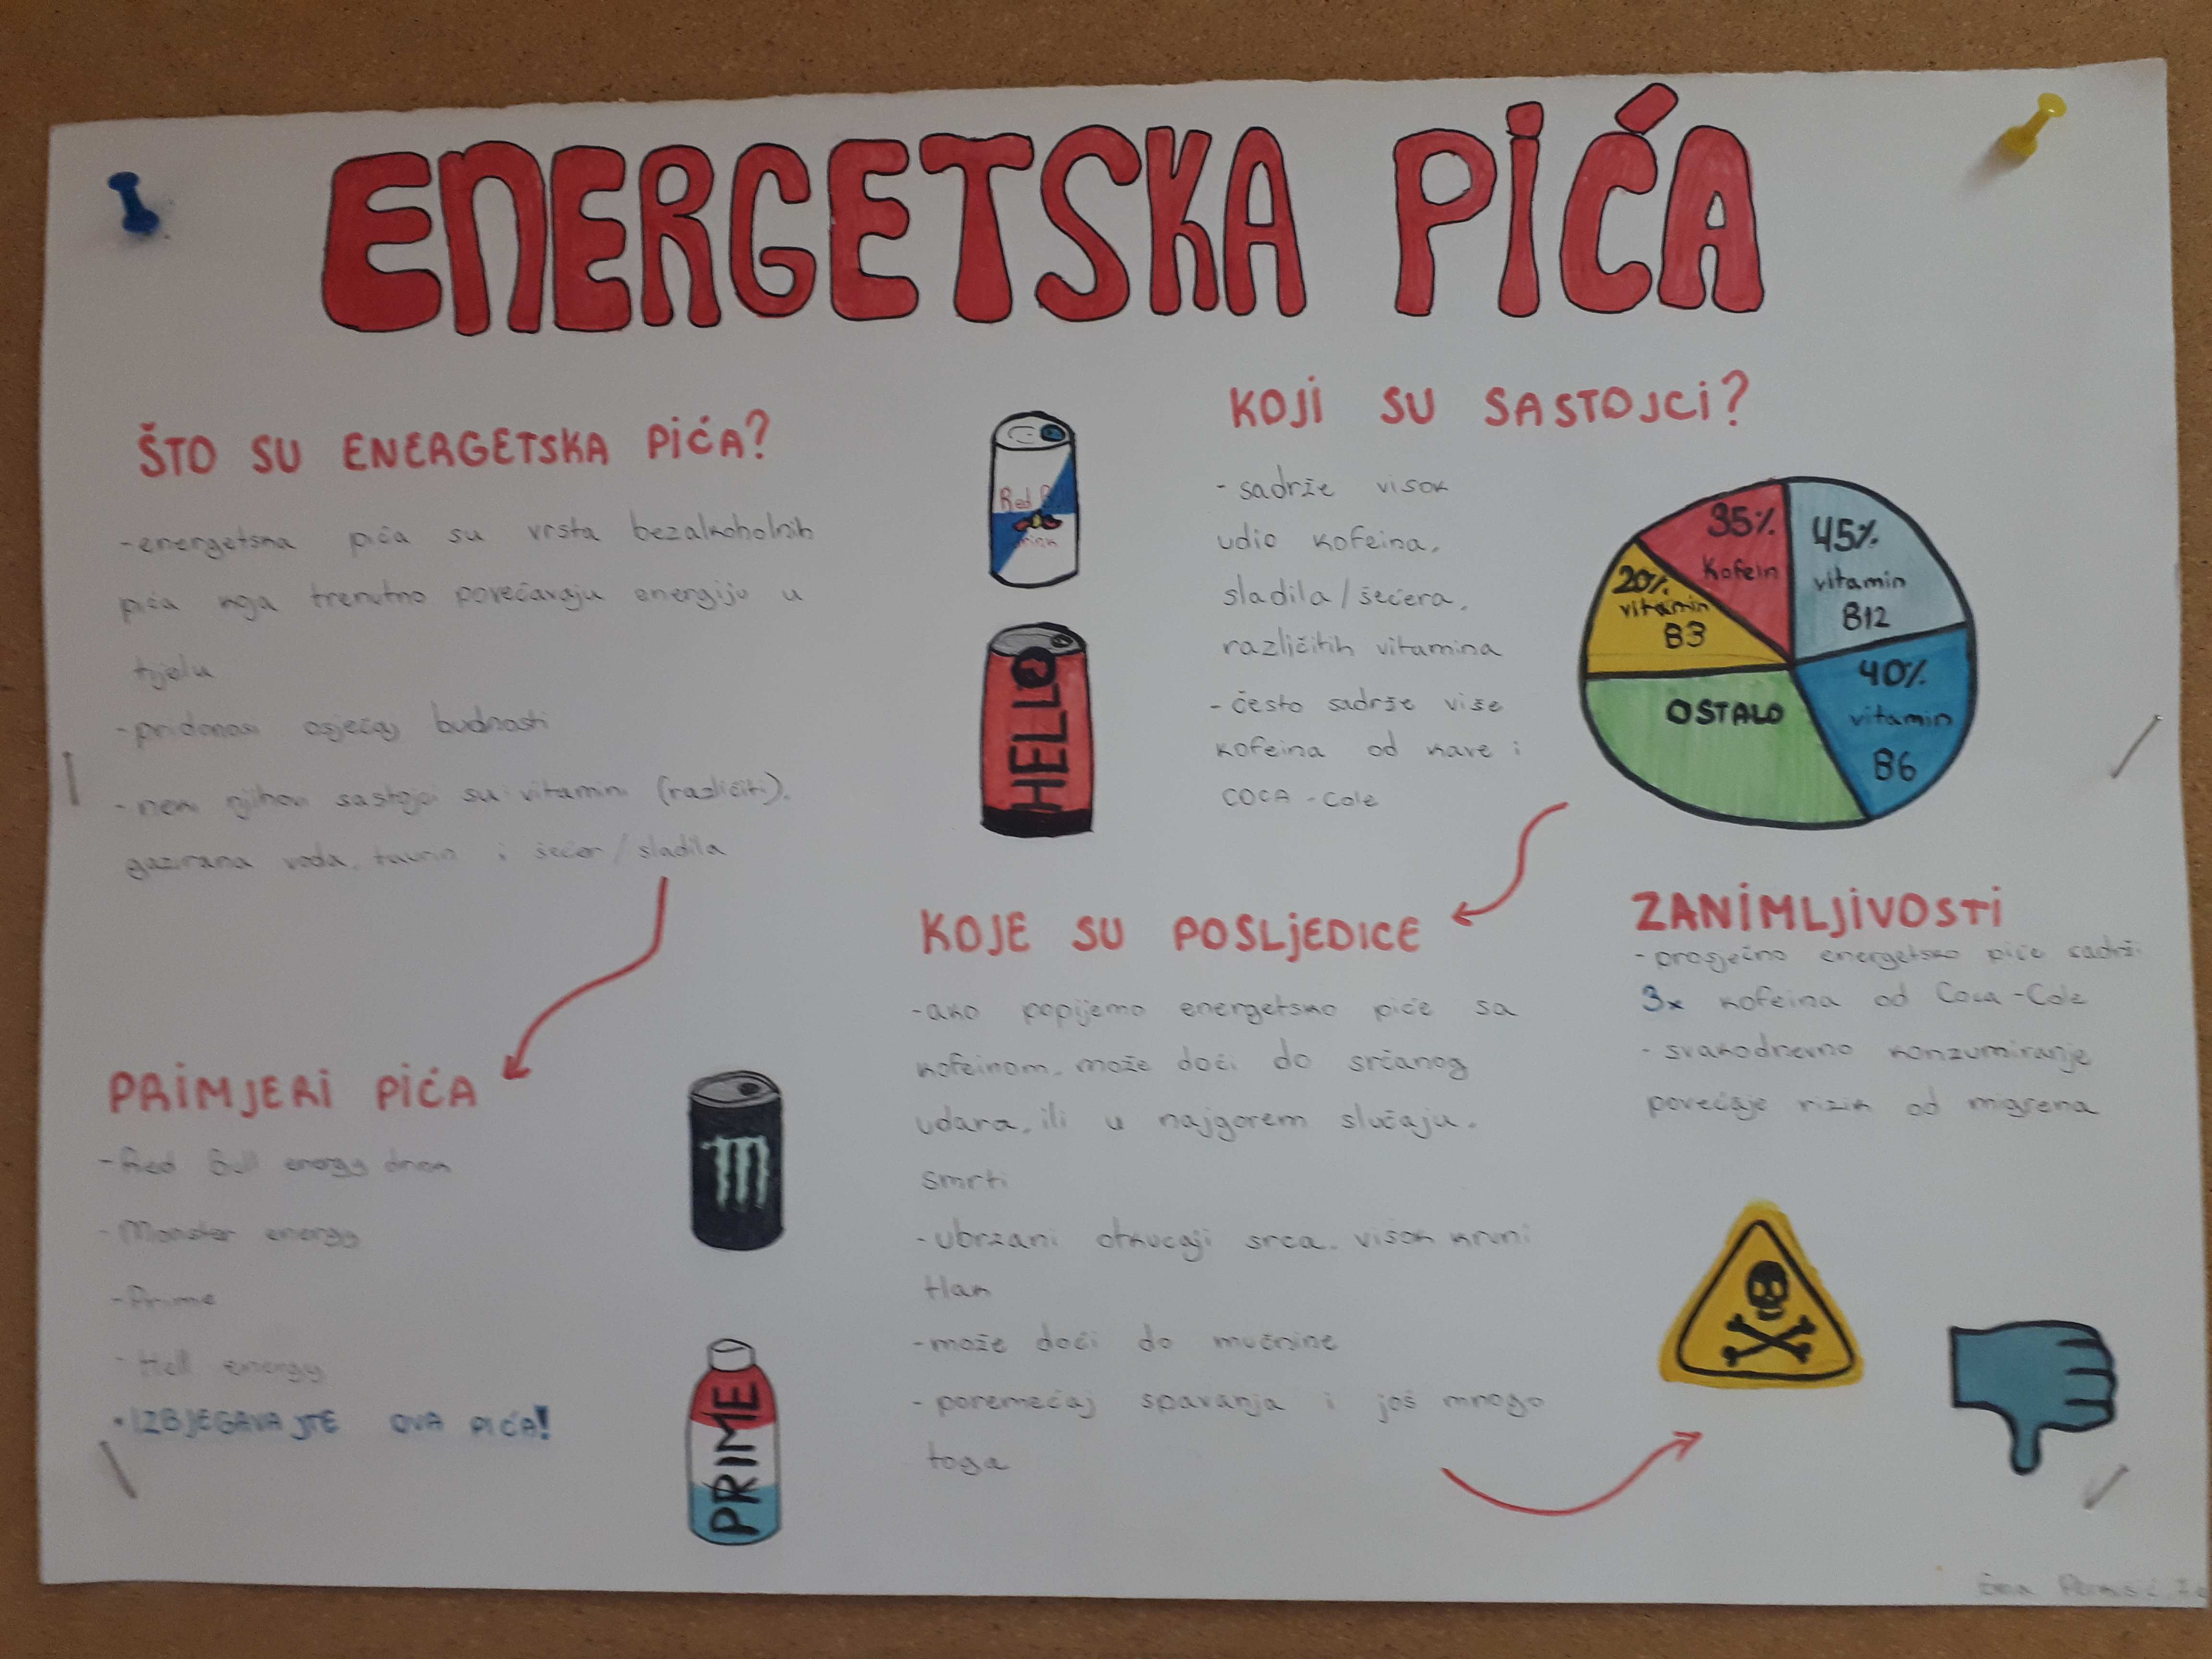 ENERGETSKA PIĆA
ŠTO SU ENERGETSKA PIĆA?
-energetska pića su vrsta bezalkoholnih
pića koja trenutno povećavaju energiju u
tijelu
-pridonosi osjećaj budnosti
-neki njihovi sastojci su vitamini (različiti),
gazirana voda, taurin i šećer/sladila
PRIMJERI PIĆA
-Red Bull energy drink
-Monster energy
-Prime
-Hell energy
•IZBJEGAVAJTE OVA PIĆA!
Red
HELLO
PRIME
KOJI SU SASTOJCI?
-sadrže visok
udio kofeina,
sladila/šećera,
različitih vitamina
-često sadrže više
kofeina od kave i
COCA-Cole
35%
Kofein
45%
vitamin
B12
20%
vitamin
B3
40%
vitamin
B6
OSTALO
KOJE SU POSLJEDICE
-ako popijemo energetsko piće sa
kofeinom, može doći do srčanog
udara, ili u najgorem slučaju,
smrti
-ubrzani otkucaji srca, visok krvni
tlak
-može doći do mučnine
-poremećaj spavanja i još mnogo
toga
ZANIMLJIVOSTI
-prosječno energetsko piće sadrži
3x kofeina od Coca-Cole
-svakodnevno konzumiranje
povećaje rizik od migrena
Ema